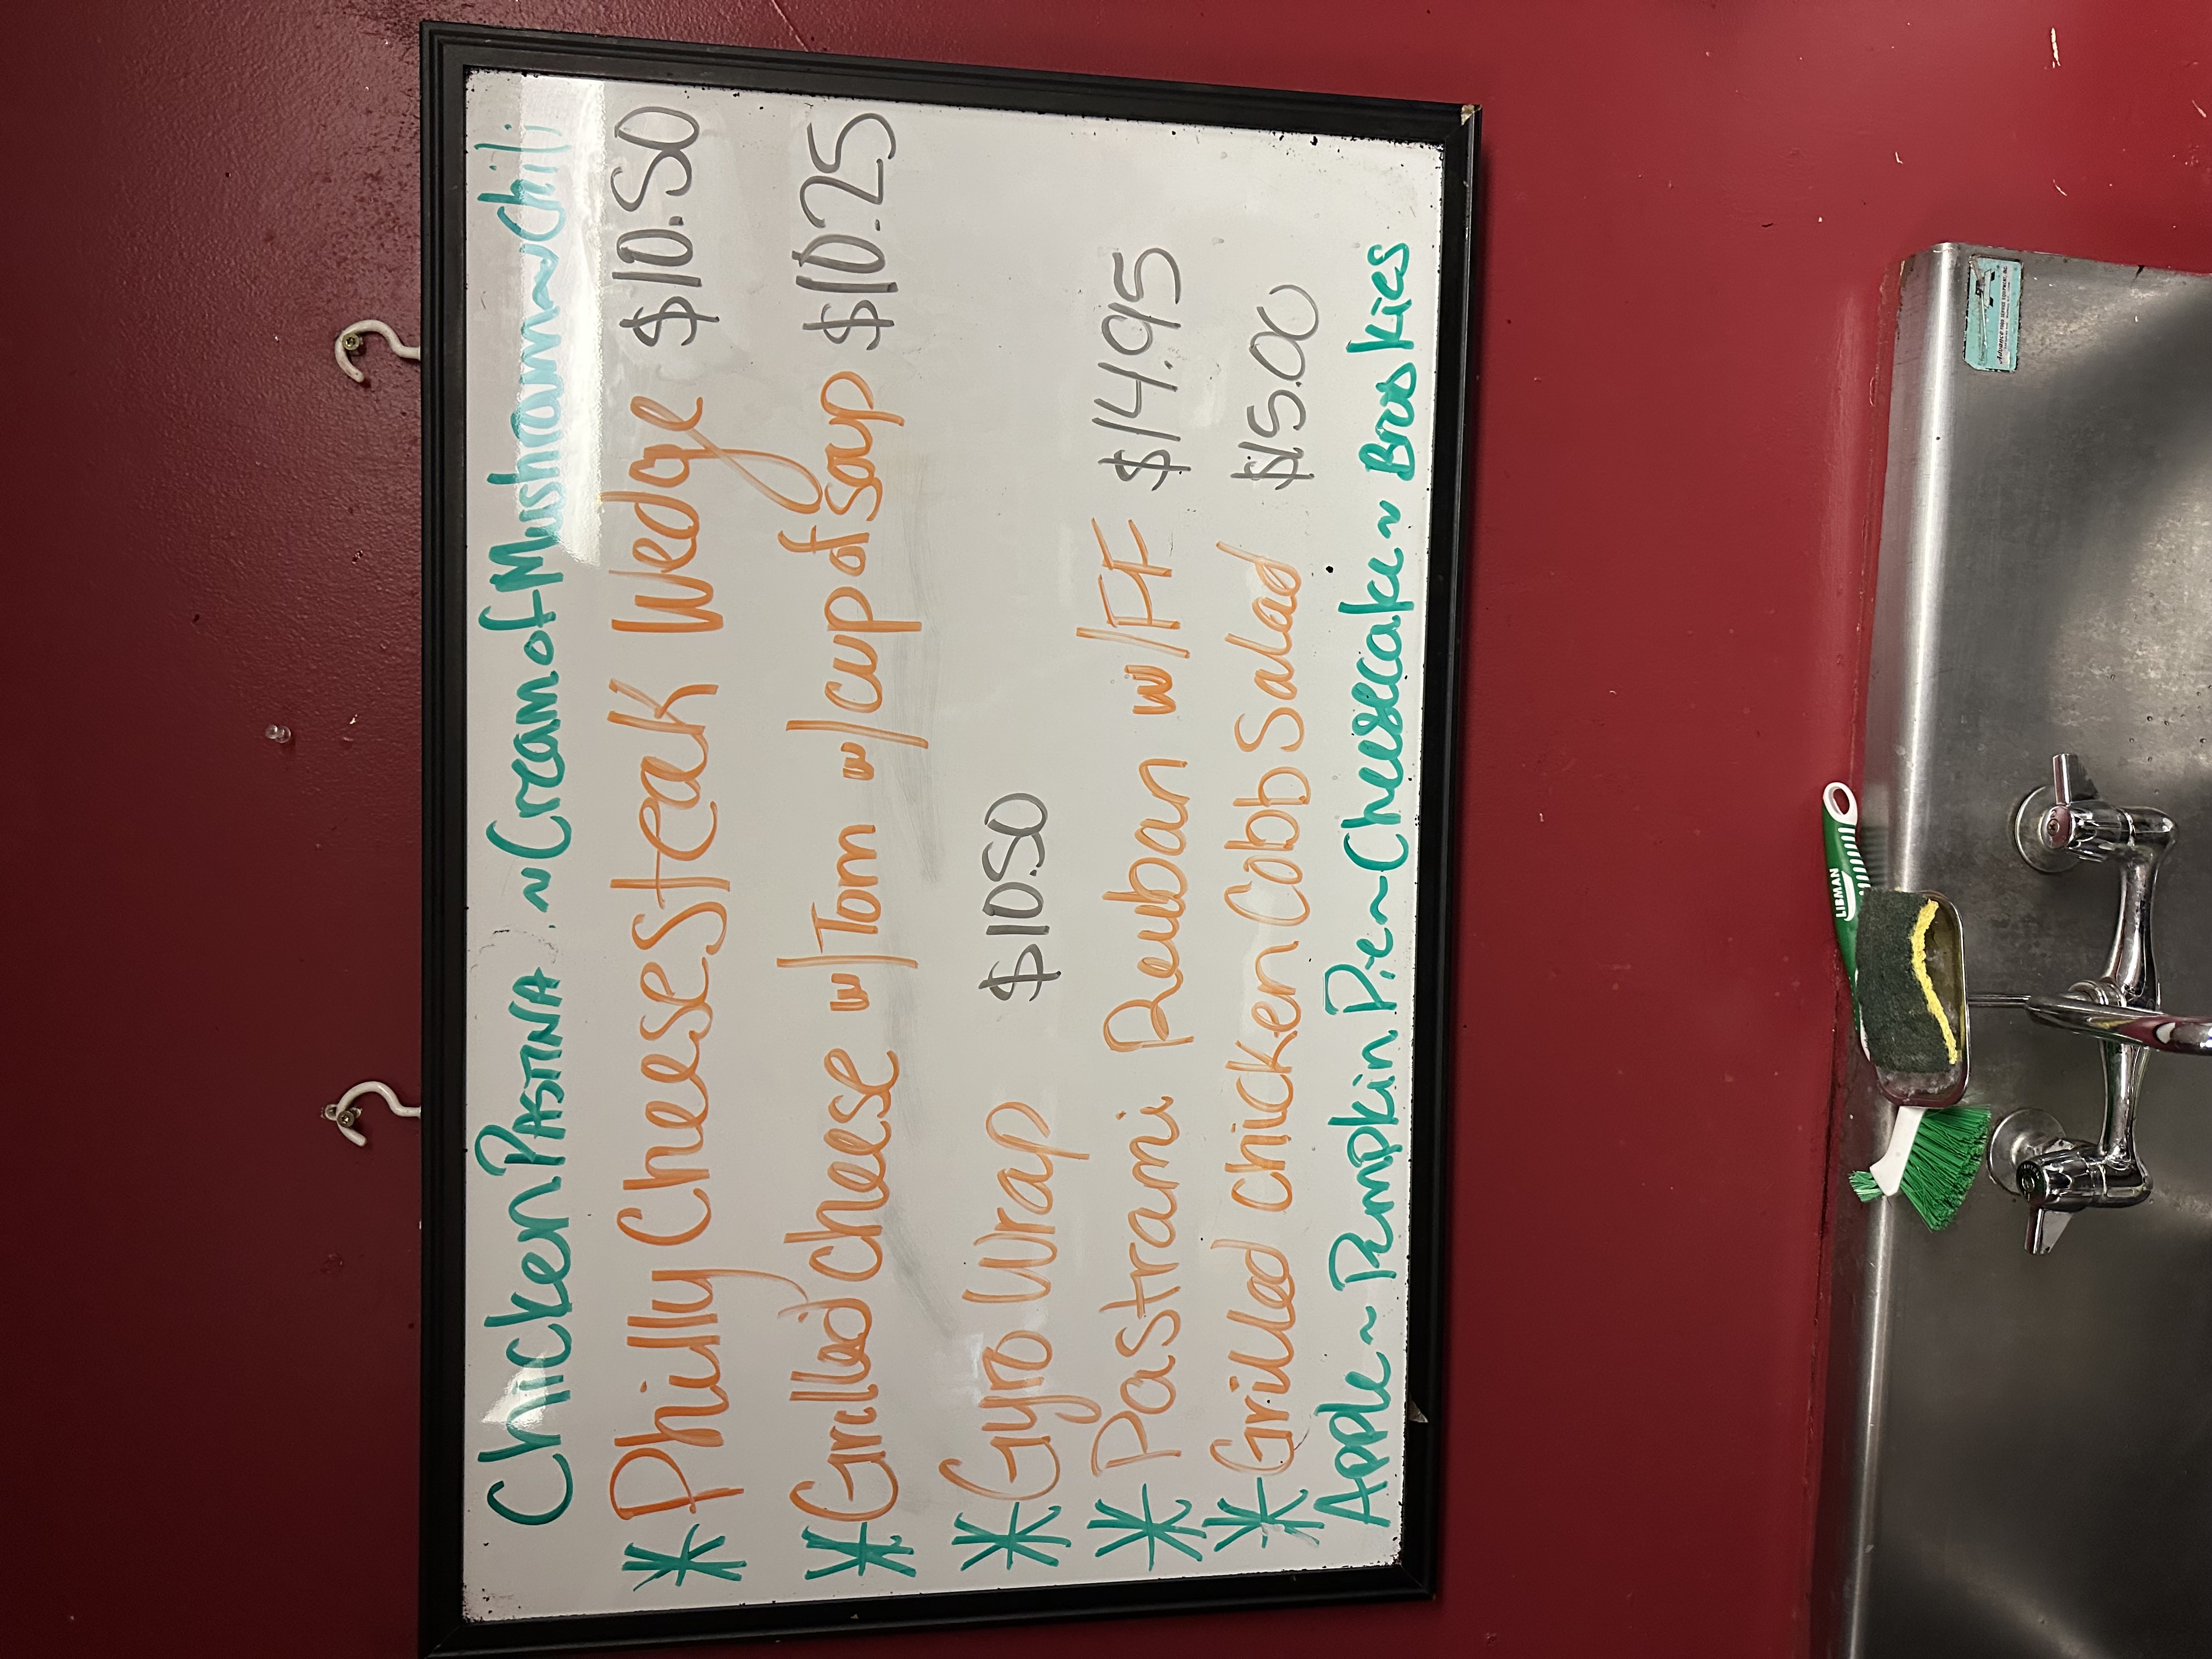 Chicken Pastina ~ Cream of Mushroom ~ Chili
* Philly Cheese Steak Wedge $10.50
* Grilled cheese w/ Tom w/ cup of soup $10.25
* Gyro Wrap $10.50
* Pastrami Reuban w/ FF $14.95
* Grilled chicken Cobb Salad $15.00
Apple ~ Pumpkin Pie ~ Cheesecake ~ Brookies
LIBMAN